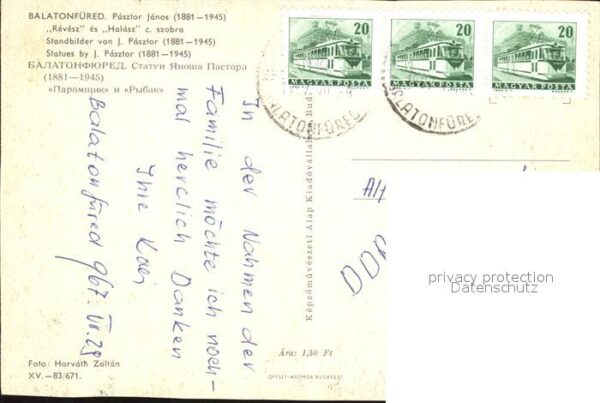 BALATONFÜRED. Pásztor János (1881—1945)
„Révész" és „Halász" c. szobra
Standbilder von J. Pásztor (1881—1945)
Statues by J. Pásztor (1881—1945)
БАЛАТОНФЮРЕД. Статуи Яноша Пастора
(1881—1945)
«Паромщик» и «Рыбак»
In der Nahmen der
Familie möchte ich noch-
mal herclich Danken
Ihre
Balatonfüred 967. VII. 29
Foto: Horváth Zoltán
XV.—83/671.
Képzőművészeti Alap Kiadóvállalata, Bud
Ára: 1,50 Ft
OFFSET-NYOMDA BUDAPEST
20
MAGYAR POSTA
20
MAGYAR POSTA
20
MAGYAR POSTA
BALATONFÜRED
BALATONFÜRED
DDR
privacy protection
Datenschutz